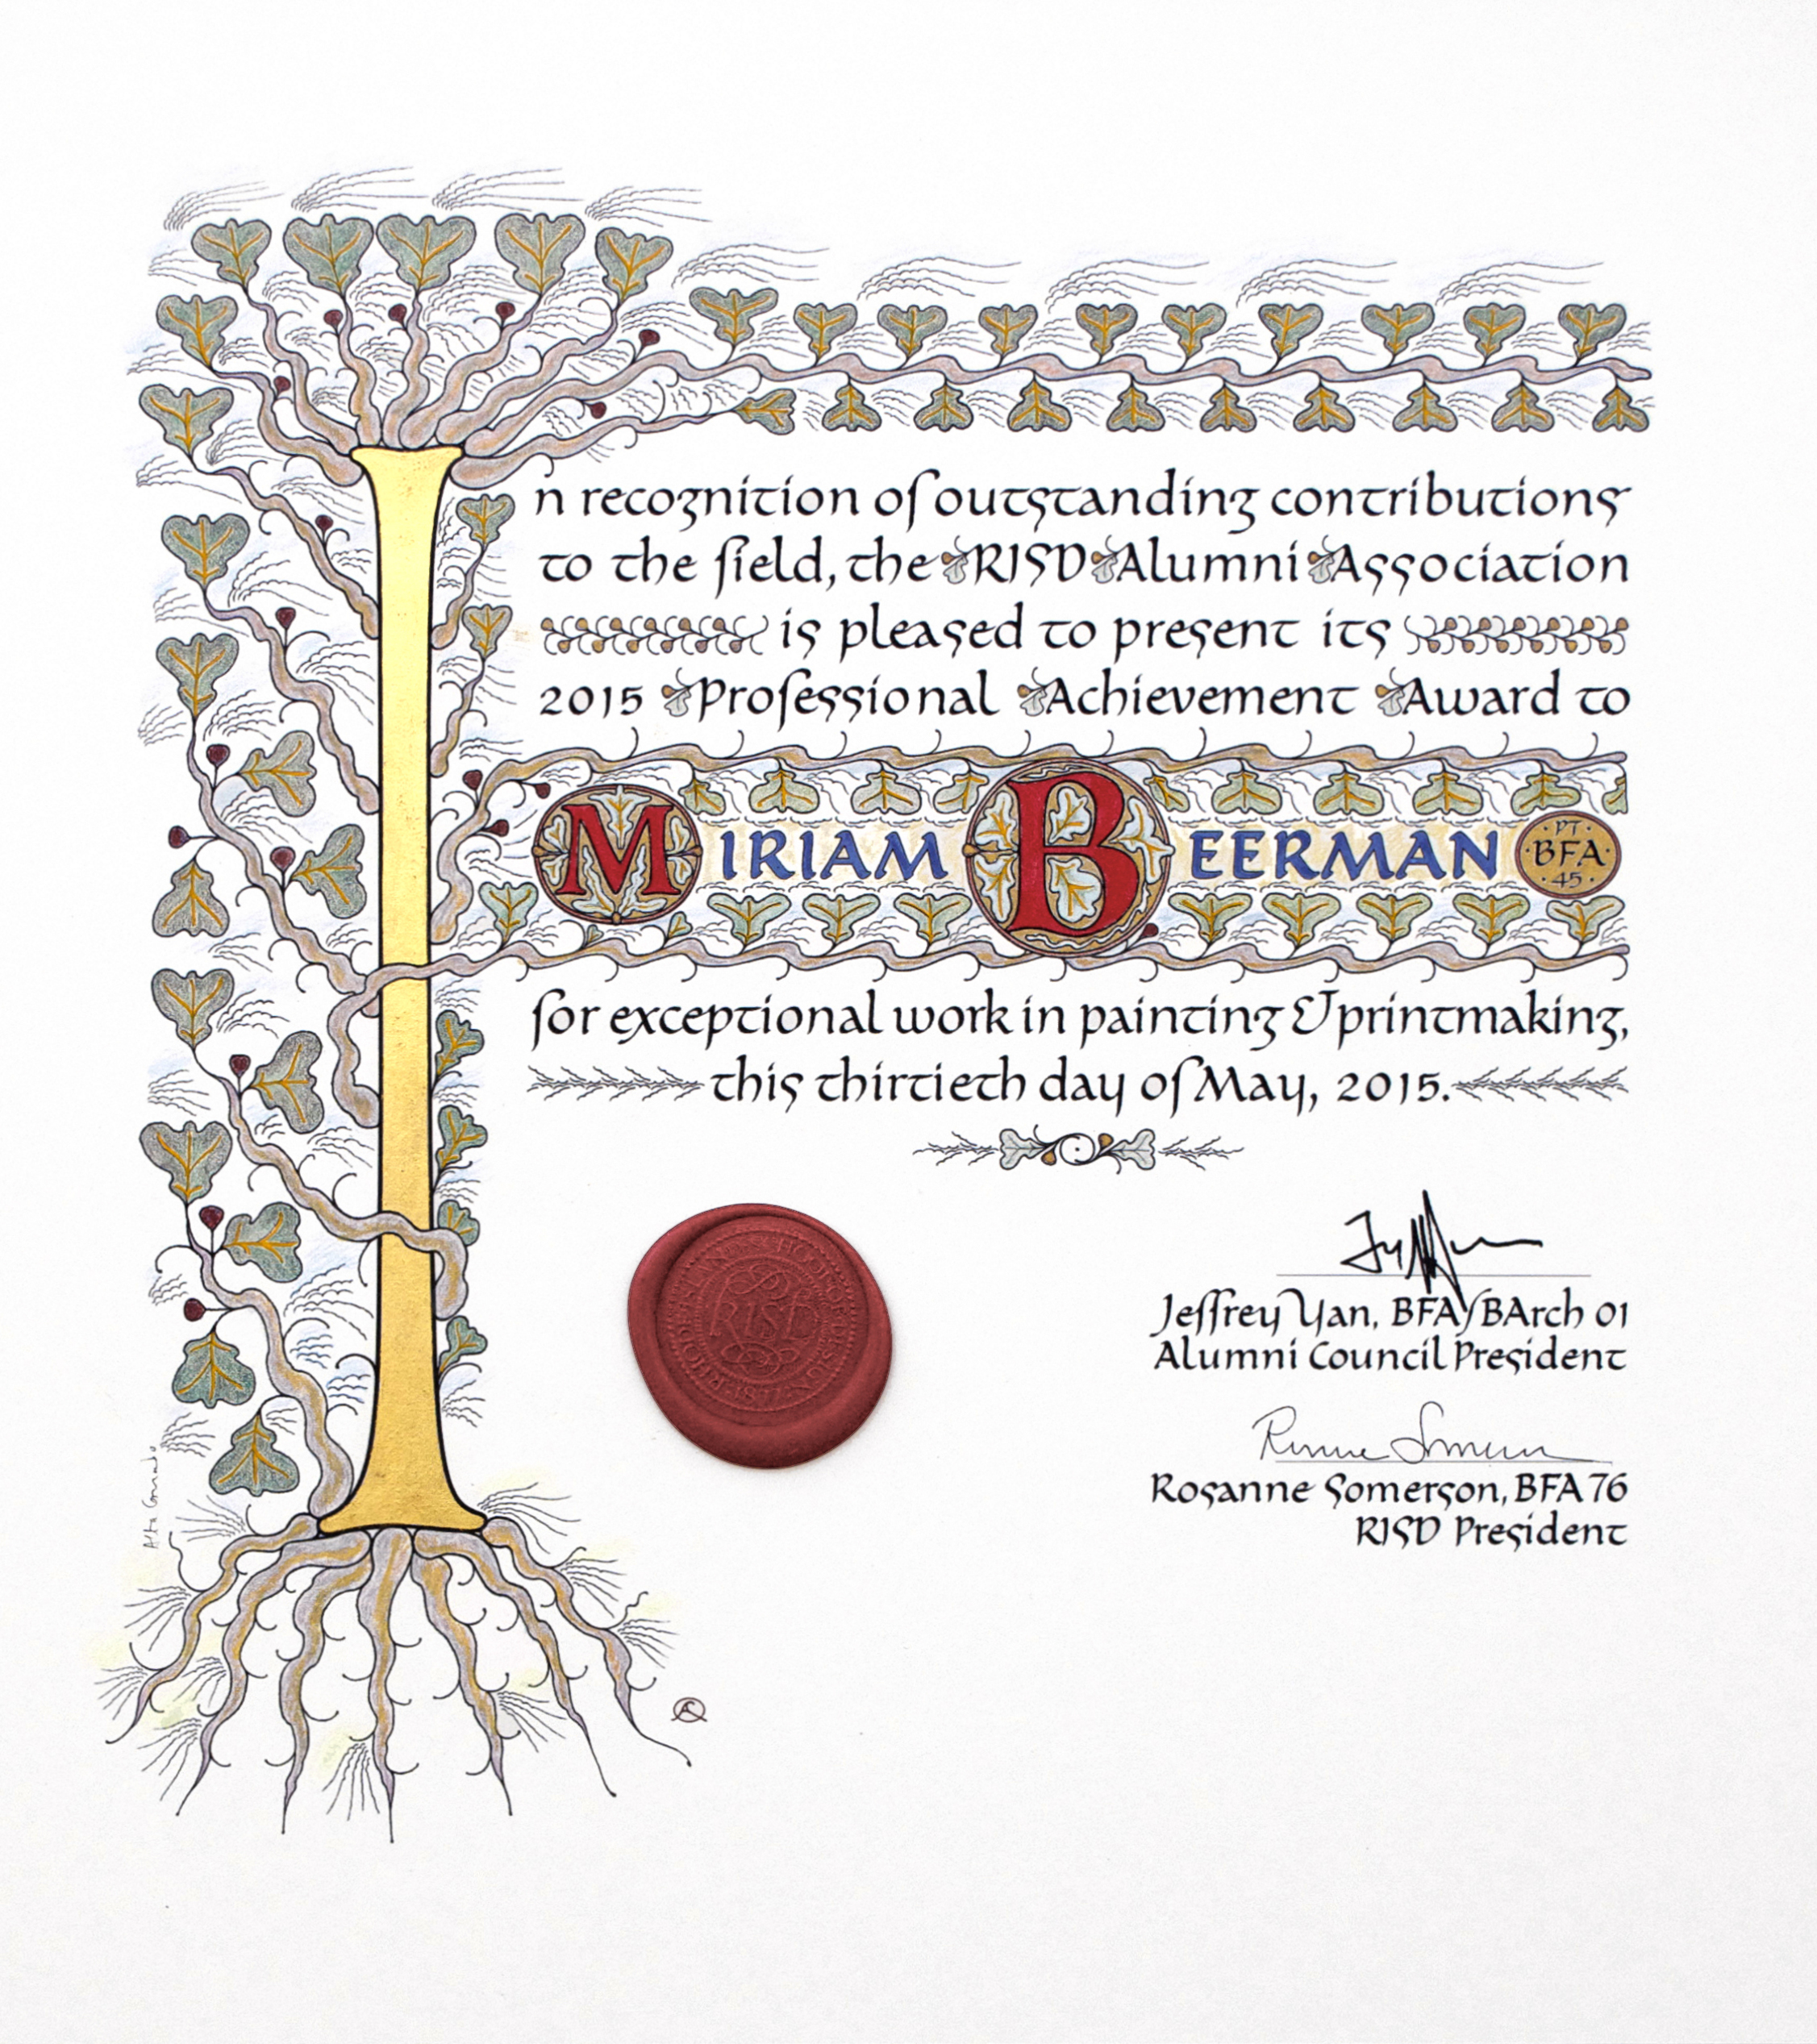 In recognition of outstanding contributions
to the field, the RISD Alumni Association
is pleased to present its
2015 Professional Achievement Award to
MIRIAM BEERMAN
·PT·
·BFA·
·45·
for exceptional work in painting & printmaking,
this thirtieth day of May, 2015.
RHODE ISLAND SCHOOL OF DESIGN
·1877·
RISD
Jeffrey Yan, BFA/BArch 01
Alumni Council President
Rosanne Somerson, BFA 76
RISD President